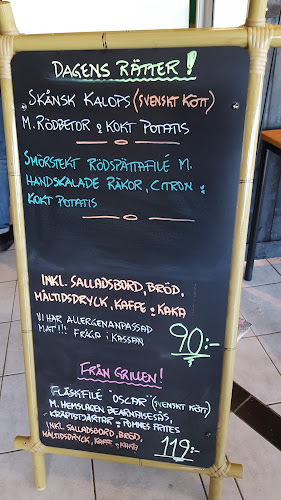 DAGENS RÄTTER!
SKÅNSK KALOPS (SVENSKT KÖTT)
M. RÖDBETOR & KOKT POTATIS
SMÖRSTEKT RÖDSPÄTTAFILÉ M.
HANDSKALADE RÄKOR, CITRON &
KOKT POTATIS
INKL. SALLADSBORD, BRÖD,
MÅLTIDSDRYCK, KAFFE & KAKA
VI HAR ALLERGENANPASSAD
MAT!!! FRÅGA I KASSAN
90:-
FRÅN GRILLEN!
FLÄSKFILÉ "OSCAR" (SVENSKT KÖTT)
M. HEMSLAGEN BEARNAISESÅS,
KRÄFTSTJÄRTAR & POMMES FRITES
INKL. SALLADSBORD, BRÖD,
MÅLTIDSDRYCK, KAFFE & KAKA
119:-